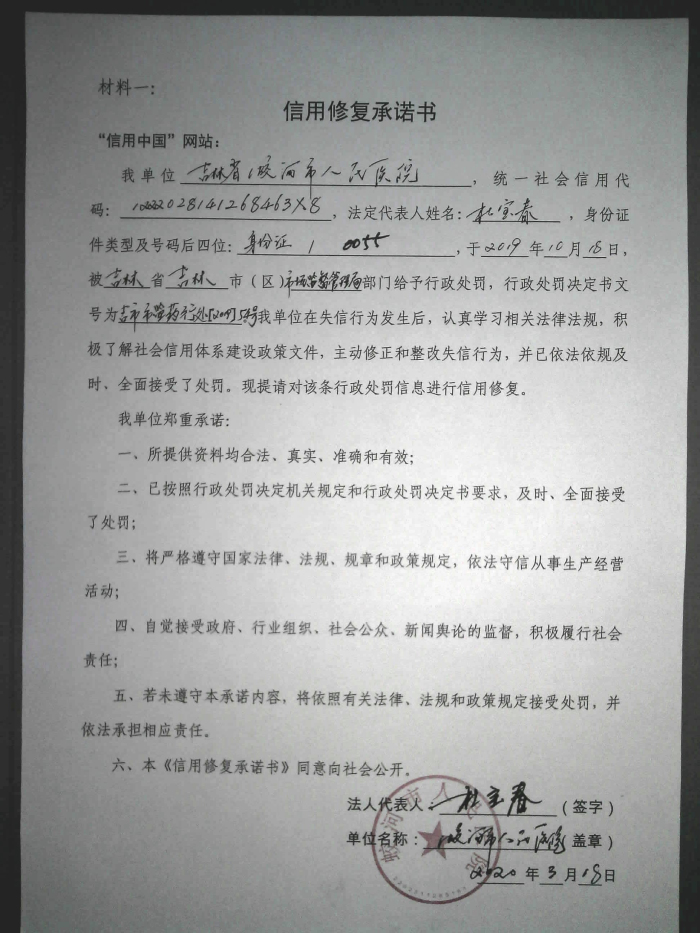 材料一：
信用修复承诺书
“信用中国”网站：
我单位 吉林省蛟河市人民医院 ，统一社会信用代
码：1222028141268463X8，法定代表人姓名：杜宝春，身份证
件类型及号码后四位：身份证 / 0055，于2019年10月18日，
被吉林省吉林市（区）市场监督管理局部门给予行政处罚，行政处罚决定书文
号为 我单位在失信行为发生后，认真学习相关法律法规，积
极了解社会信用体系建设政策文件，主动修正和整改失信行为，并已依法依规及
时、全面接受了处罚。现提请对该条行政处罚信息进行信用修复。
我单位郑重承诺：
一、所提供资料均合法、真实、准确和有效；
二、已按照行政处罚决定机关规定和行政处罚决定书要求，及时、全面接受
了处罚；
三、将严格遵守国家法律、法规、规章和政策规定，依法守信从事生产经营
活动；
四、自觉接受政府、行业组织、社会公众、新闻舆论的监督，积极履行社会
责任；
五、若未遵守本承诺内容，将依照有关法律、法规和政策规定接受处罚，并
依法承担相应责任。
六、本《信用修复承诺书》同意向社会公开。
法人代表人：杜宝春（签字）
单位名称：蛟河市人民医院 盖章）
2020年3月18日